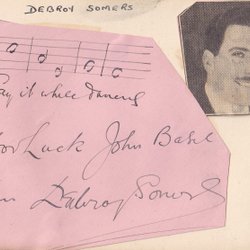 DEBROY SOMERS
Say it while dancing
Luck John Basil
Debroy Somers